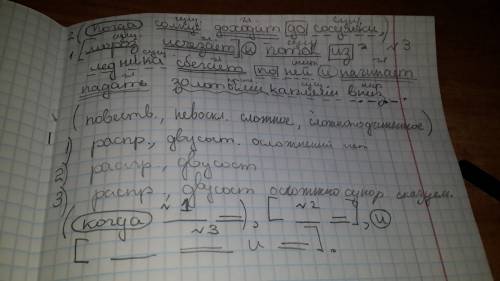 2 (когда солнце доходит до сосульки,)
мороз исчезает и поток из ² ~3
ледника сбегает по ней и начинает
падать золотыми каплями вниз.
(повеств., невоскл. сложное, сложноподчиненное)
1) распр., двусост. осложнений нет
2) распр., двусост
3) распр., двусост осложнено сказуем.
~1 ~2
(когда ), [ ], и
~3
[ и ].